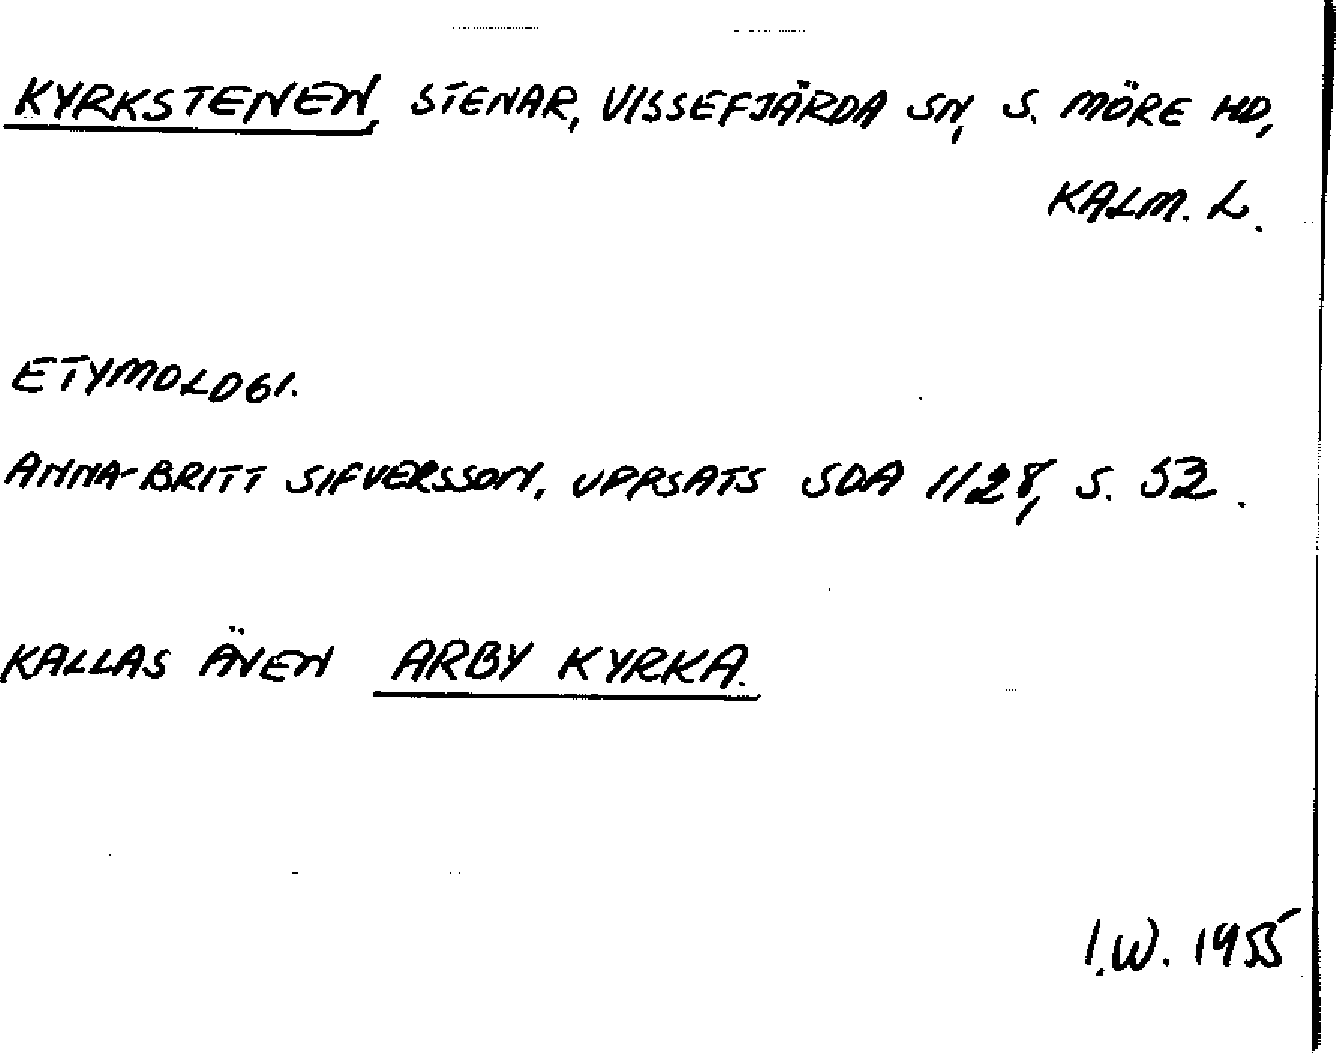 KYRKSTENEN, STENAR, VISSEFJÄRDA SN, S. MÖRE HD,
KALM. L.
ETYMOLOGI.
ANNA-BRITT SIFVERSSON, UPPSATS SOA 1128, S. 52.
KALLAS ÄVEN ARBY KYRKA.
I.W. 1955